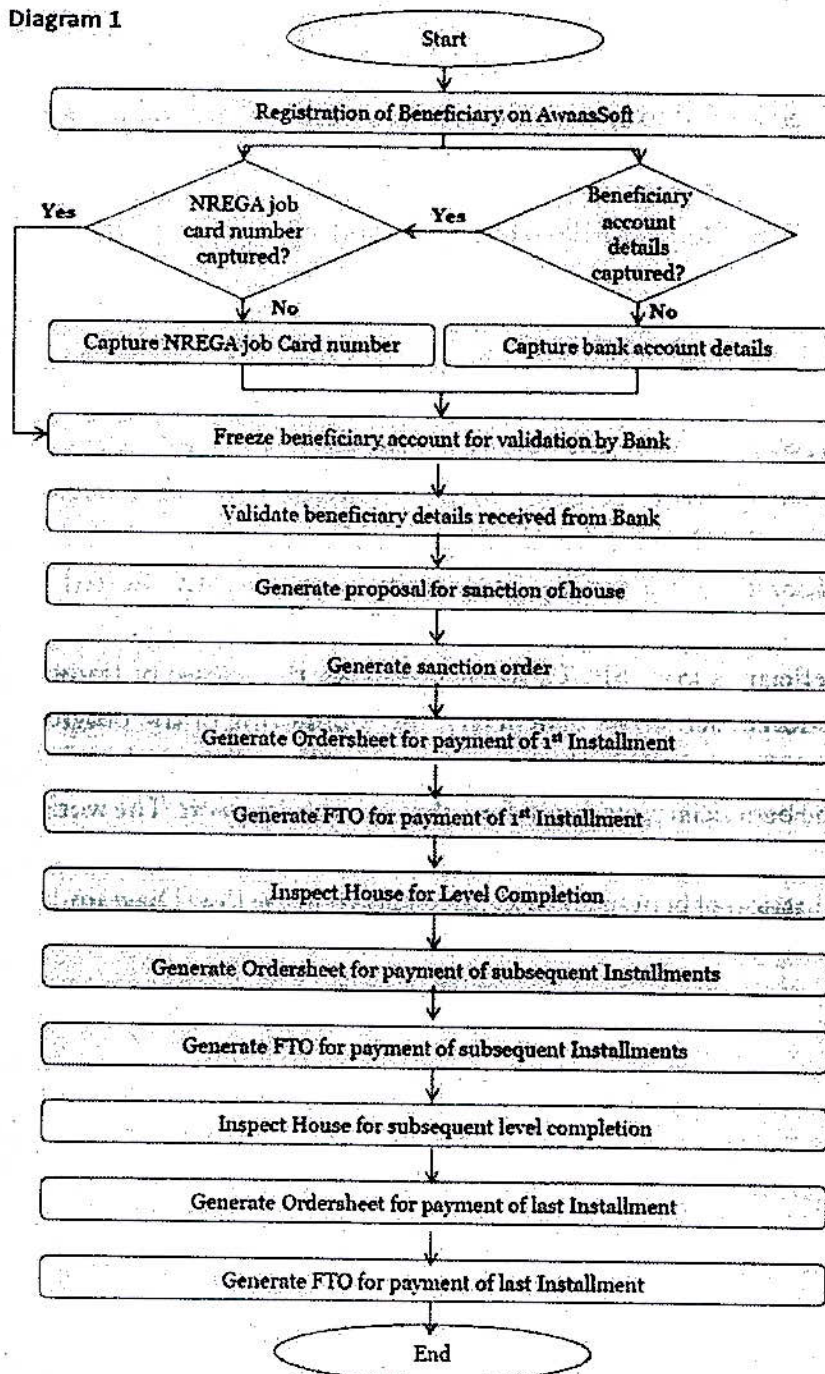 Diagram 1
Start
Registration of Beneficiary on AwaasSoft
NREGA job
card number
captured?
Yes
Yes
Beneficiary
account
details
captured?
No
No
Capture NREGA job Card number
Capture bank account details
Freeze beneficiary account for validation by Bank
Validate beneficiary details received from Bank
Generate proposal for sanction of house
Generate sanction order
Generate Ordersheet for payment of 1st Installment
Generate FTO for payment of 1st Installment
Inspect House for Level Completion
Generate Ordersheet for payment of subsequent Installments
Generate FTO for payment of subsequent Installments
Inspect House for subsequent level completion
Generate Ordersheet for payment of last Installment
Generate FTO for payment of last Installment
End